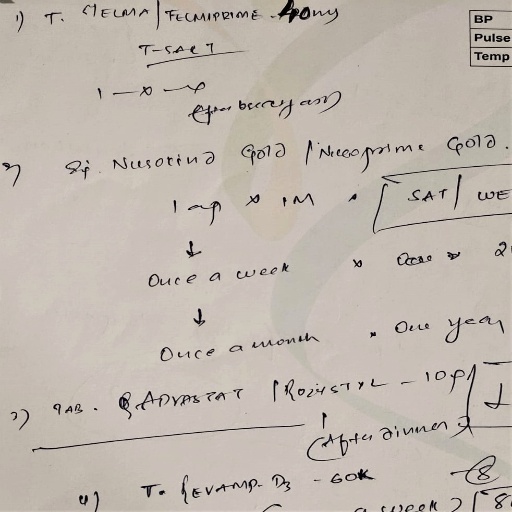 1) T. TELMA / TELMIPRIME - 40mg
BP
Pulse
Temp
T-SART
1 — x — x
(after breakfast)
2) Inj. Nusotino Gold / Neuroprime Gold.
1 amp x IM . [ SAT / WE
↓
Once a week x Once x 2
↓
Once a month x One year
3) TAB. ADVASTAT / ROZISTYL - 10
(After dinner)
4) T. REVAMP-D3 - 60K - (8
a week) [8